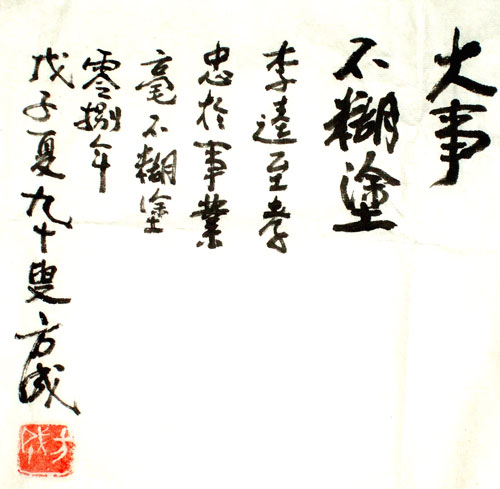 大事
不糊塗
李逵至孝
忠於事業
毫不糊塗
零捌年
戊子夏九十叟方成
方成